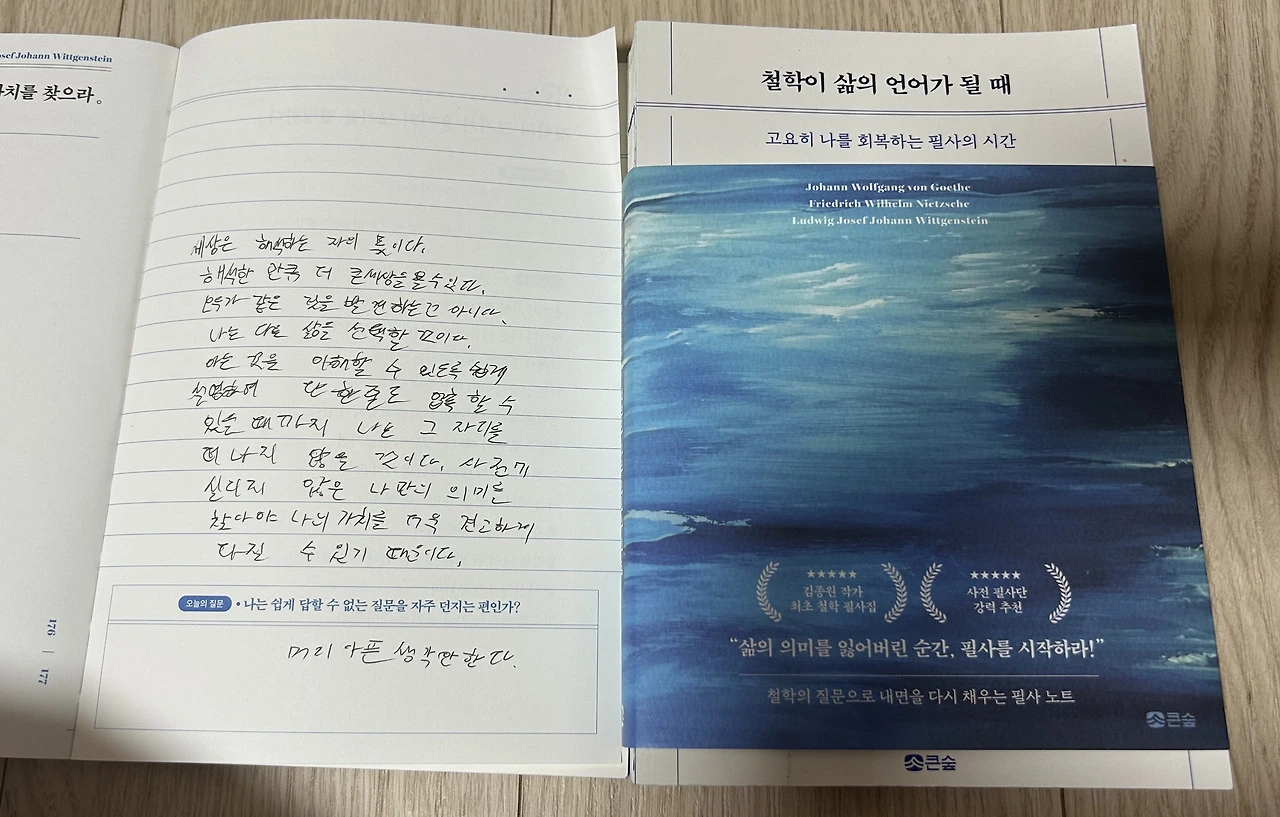 Josef Johann Wittgenstein
가치를 찾으라。
세상은 해석하는 자의 몫이다.
해석한 만큼 더 큰 세상을 볼 수 있다.
모두가 같은 것을 발견하는 건 아니다.
나는 다른 삶을 선택할 것이다.
아는 것을 이해할 수 있도록 쉽게
설명하여 단 한 줄로 압축 할 수
있을 때까지 나는 그 자리를
떠나지 않을 것이다. 사전에
실리지 않은 나만의 의미를
찾아야 나의 가치를 더욱 견고하게
다질 수 있기 때문이다.
오늘의 질문 • 나는 쉽게 답할 수 없는 질문을 자주 던지는 편인가?
머리 아픈 생각만 한다.
176 | 177
철학이 삶의 언어가 될 때
고요히 나를 회복하는 필사의 시간
Johann Wolfgang von Goethe
Friedrich Wilhelm Nietzsche
Ludwig Josef Johann Wittgenstein
★★★★★
김종원 작가
최초 철학 필사집
★★★★★
사전 필사단
강력 추천
“삶의 의미를 잃어버린 순간, 필사를 시작하라!”
철학의 질문으로 내면을 다시 채우는 필사 노트
큰숲
큰숲